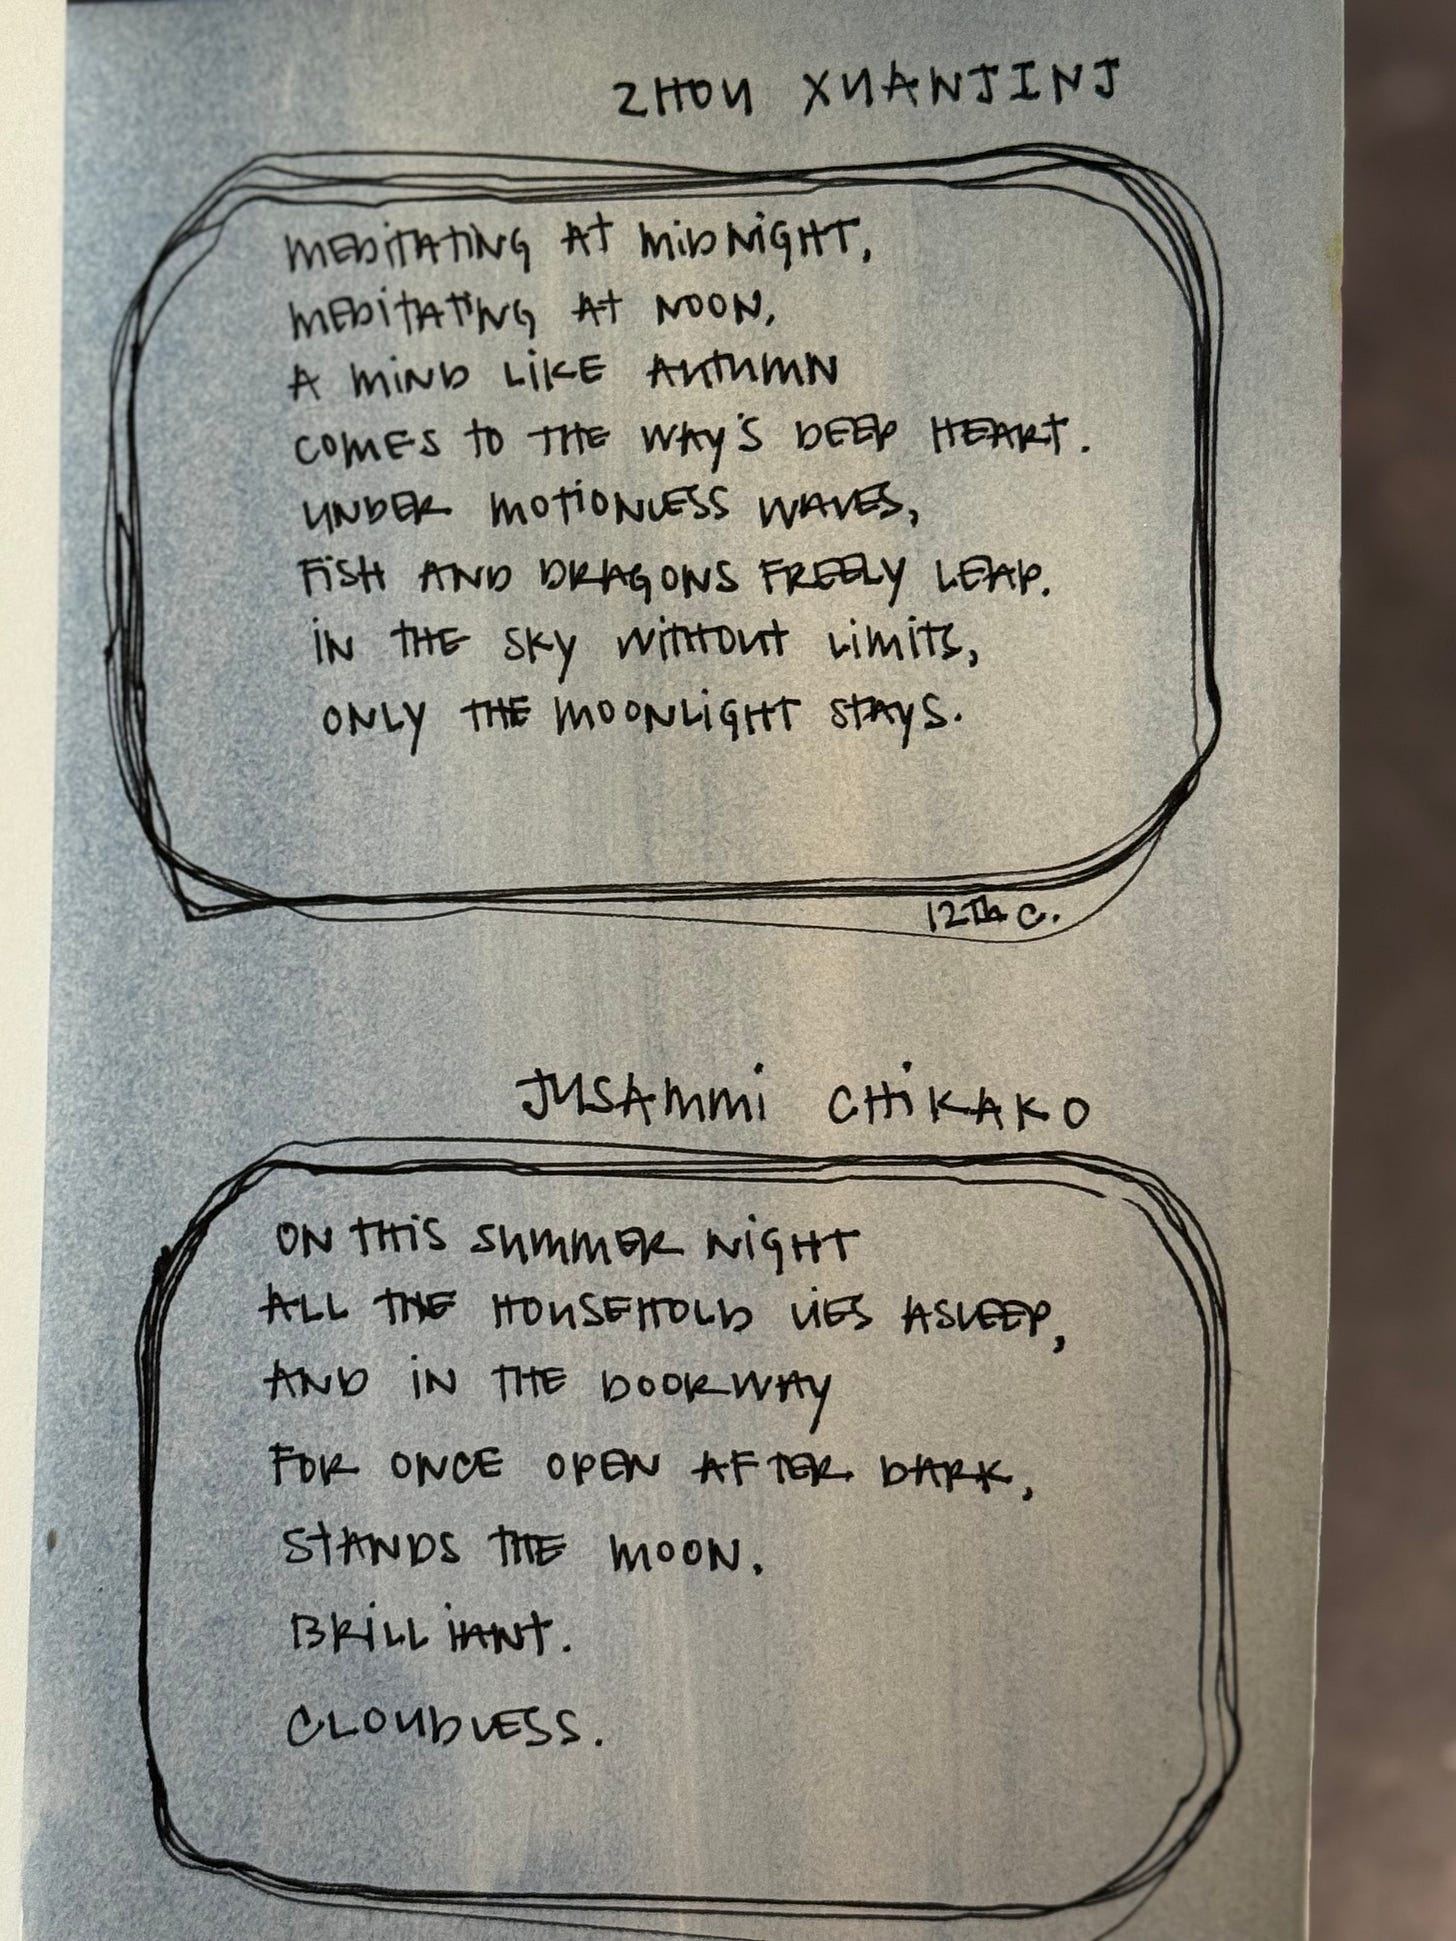 ZHOU XUANJINJ
MEDITATING AT MIDNIGHT,
MEDITATING AT NOON,
A MIND LIKE AUTUMN
COMES TO THE WAY'S DEEP HEART.
UNDER MOTIONLESS WAVES,
FISH AND DRAGONS FREELY LEAP.
IN THE SKY WITHOUT LIMITS,
ONLY THE MOONLIGHT STAYS.
12TH C.
JUSAMMI CHIKAKO
ON THIS SUMMER NIGHT
ALL THE HOUSEHOLD LIES ASLEEP,
AND IN THE DOORWAY
FOR ONCE OPEN AFTER DARK,
STANDS THE MOON.
BRILLIANT.
CLOUDLESS.